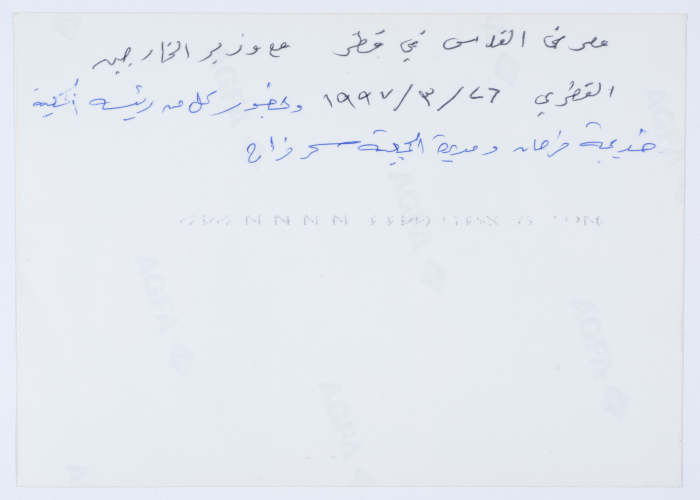 معرض القدس في قطر مع وزير الخارجية
القطري ٢٦/٣/١٩٩٧ وبحضور كل من رئيسة الجمعية
خديجة فرحان ومديرة الجمعية سحر فراج
AGFA
AGFA
AGFA
AGFA
AGFA
AGFA